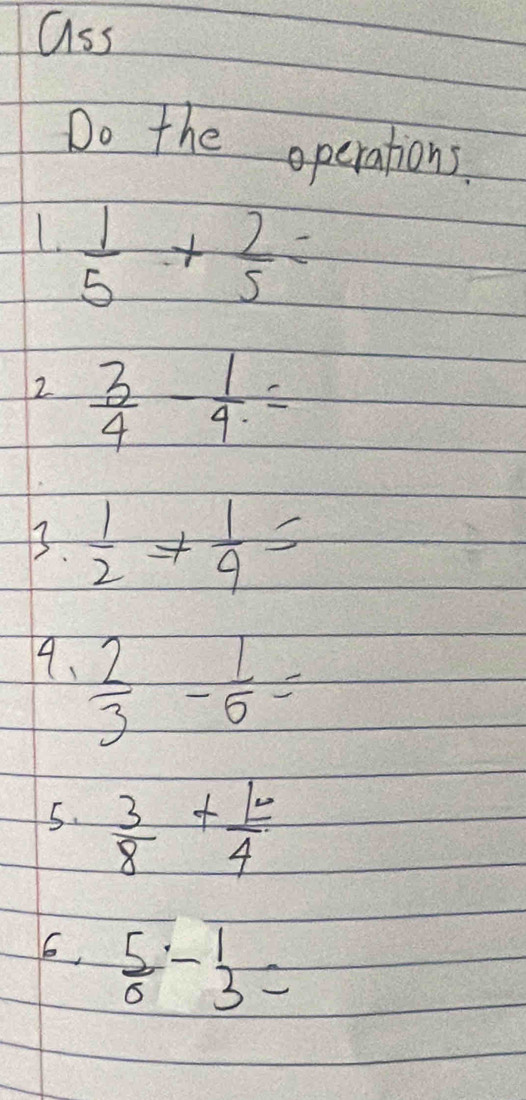 Ass
Do the operations.
1. 1/5 + 2/5 =
2 3/4 - 1/4 =
3. 1/2 + 1/4 =
4. 2/3 - 1/6 =
5. 3/8 + 1/4 =
6. 5/6 - 1/3 =